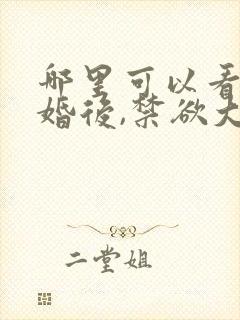 哪里可以看
婚後,禁欲大
二堂姐